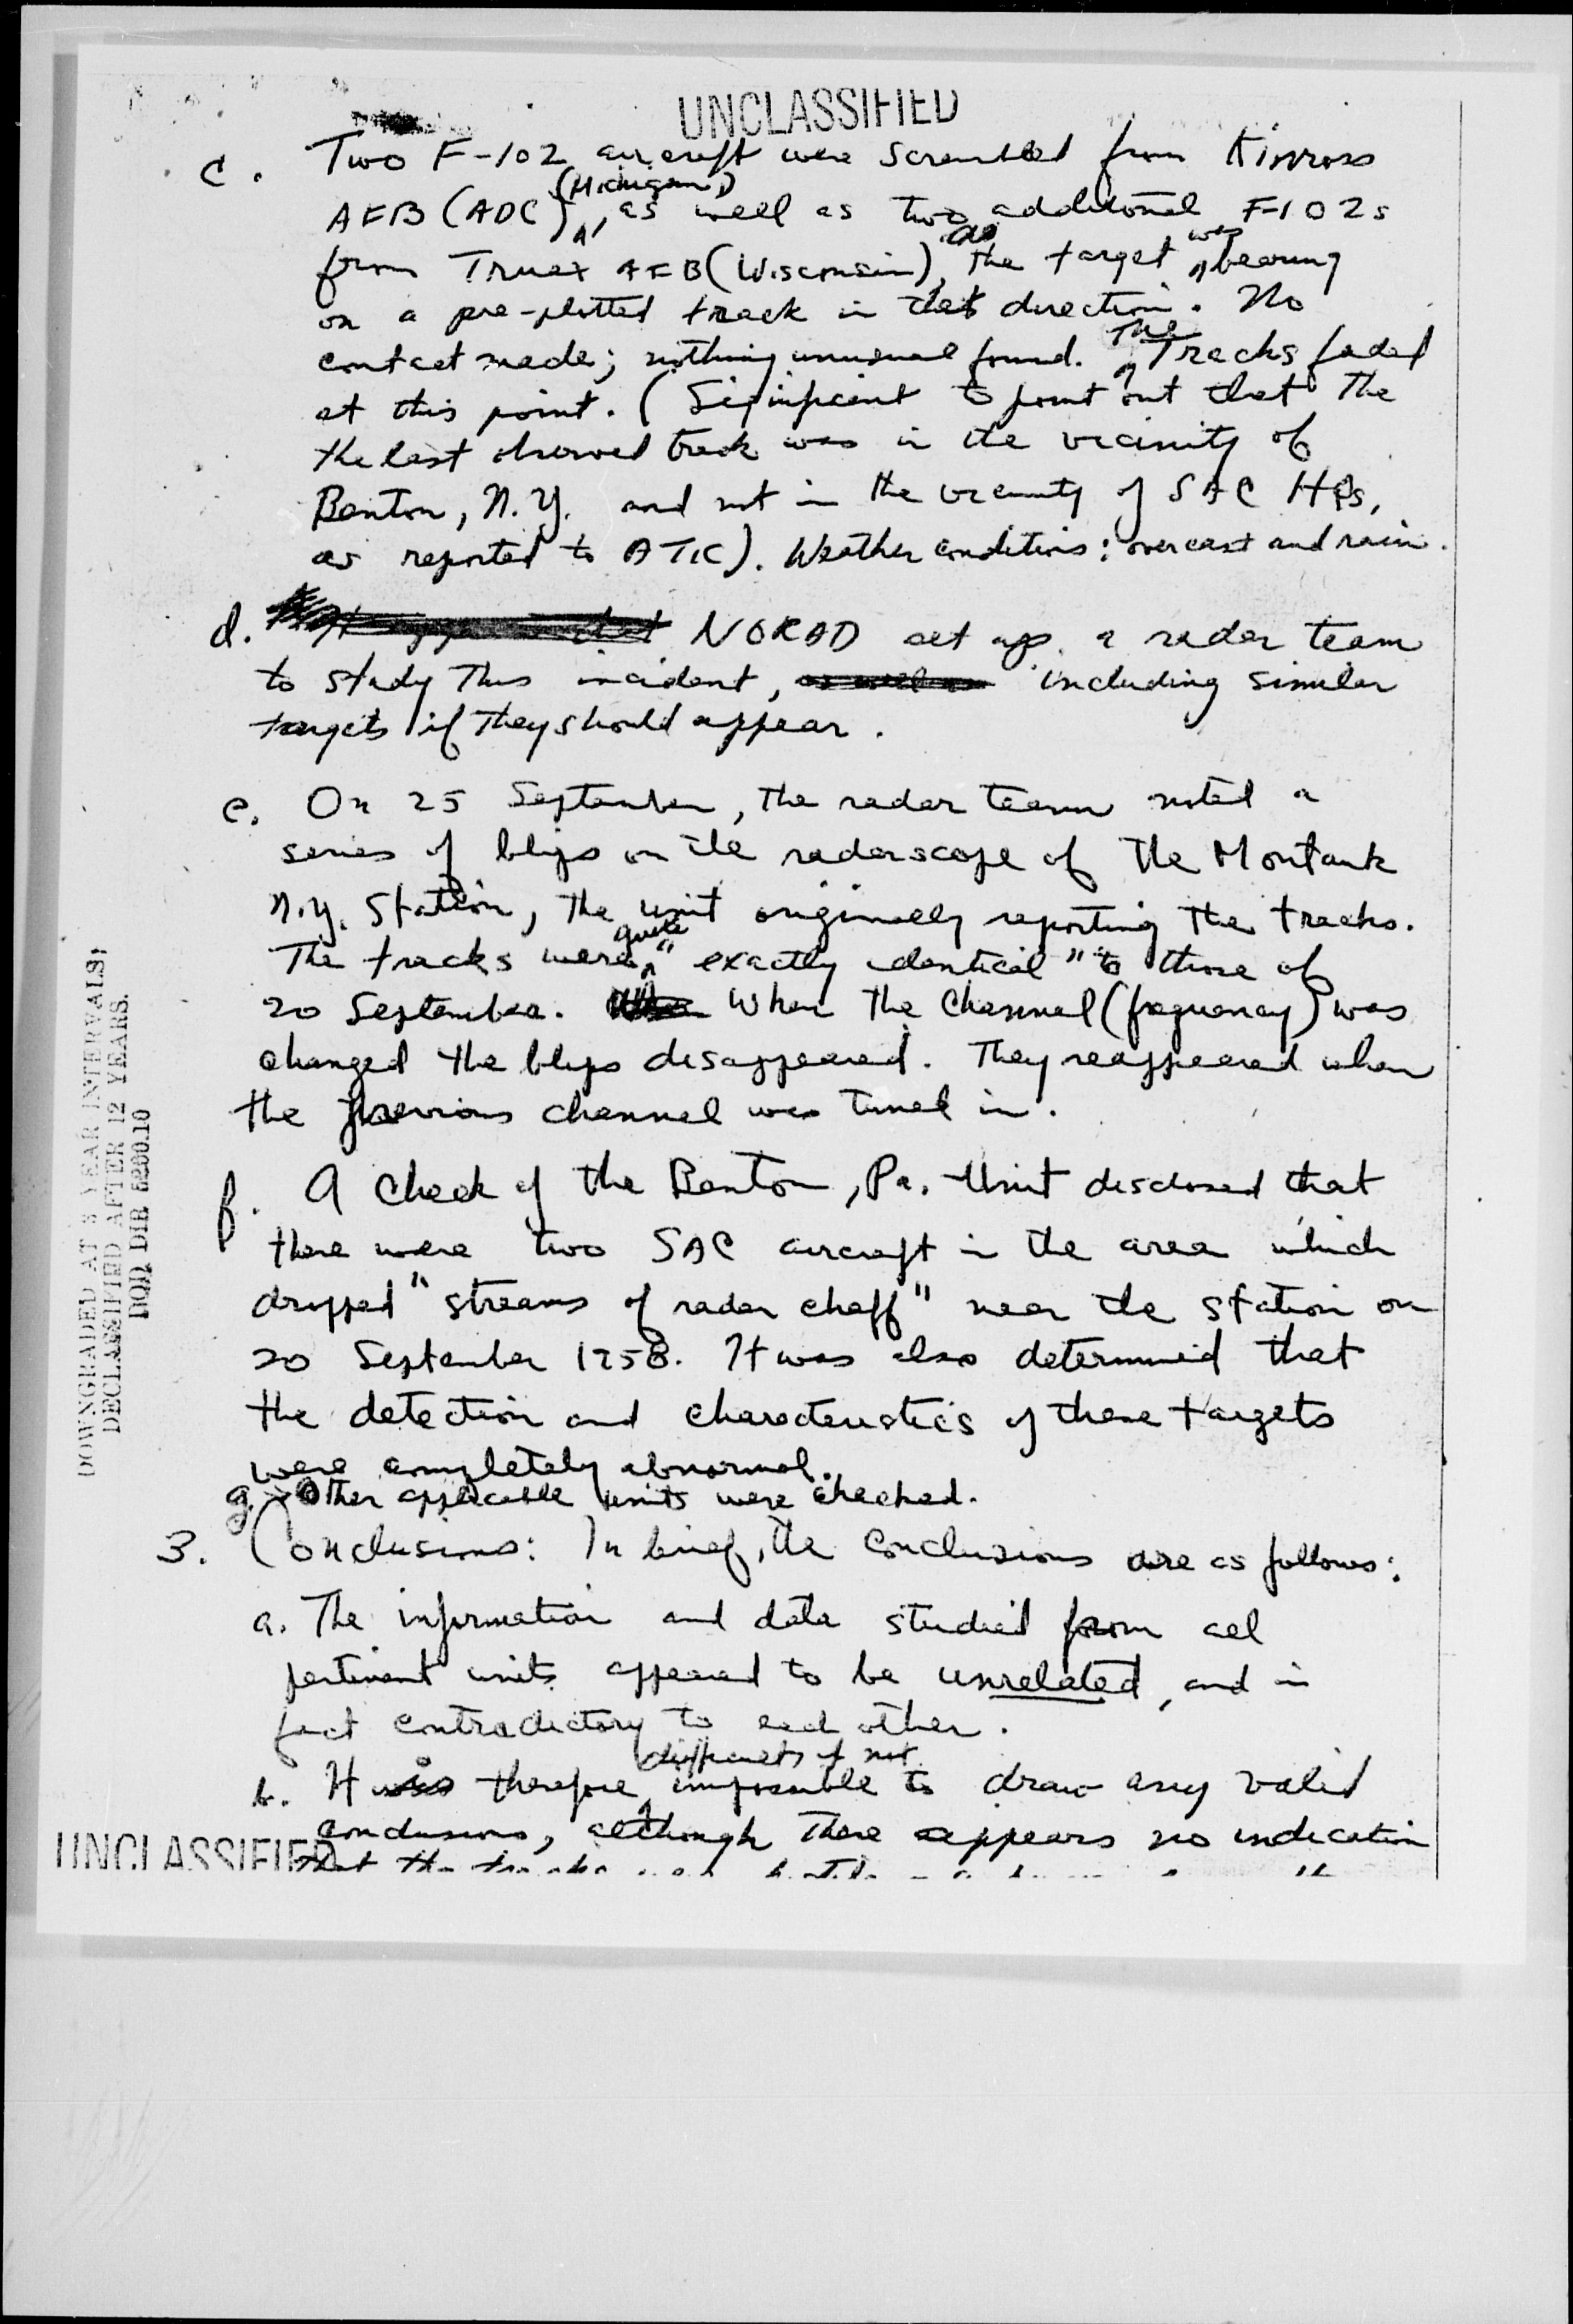 UNCLASSIFIED
c. Two F-102 aircraft were scrambled from Kinross
(Michigan)
AFB (ADC), as well as two additional F-102s
as was
from Truax AFB (Wisconsin), the target bearing
on a pre-plotted track in that direction. No
The
contact made; nothing unusual found. Tracks faded
at this point. (Significant to point out that the
the last observed track was in the vicinity of
Benton, N.Y. and not in the vicinity of SAC HQs,
as reported to ATIC). Weather conditions: overcast and rain.
d. NORAD set up a radar team
to study this incident, as well as including similar
targets if they should appear.
e. On 25 September, the radar team noted a
series of blips on the radarscope of the Montauk
N.Y. Station, the unit originally reporting the tracks.
quote
The tracks were "exactly identical" to those of
20 September. When the channel (frequency) was
changed the blips disappeared. They reappeared when
the previous channel was tuned in.
f. A check of the Benton, Pa. Unit disclosed that
there were two SAC aircraft in the area which
dropped "streams of radar chaff" near the station on
20 September 1958. It was also determined that
the detection and characteristics of these targets
were completely abnormal.
g. Other applicable units were checked.
3. Conclusions: In brief, the conclusions are as follows:
a. The information and data studied from all
pertinent units appeared to be unrelated, and in
fact contradictory to each other.
difficult if not
b. It is therefore impossible to draw any valid
conclusions, although there appears no indication
UNCLASSIFIED
that the
DOWNGRADED AT 3 YEAR INTERVALS;
DECLASSIFIED AFTER 12 YEARS.
DOD DIR 5200.10